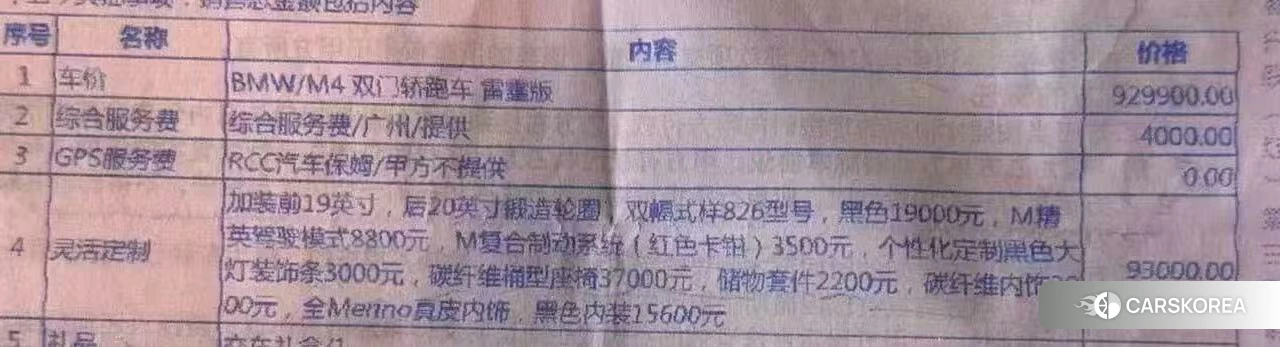 销售总金额包括内容
序号 名称 内容 价格
1 车价 BMW/M4 双门轿跑车 雷霆版 929900.00
2 综合服务费 综合服务费/广州/提供 4000.00
3 GPS服务费 RCC汽车保姆/甲方不提供 0.00
加装前19英寸，后20英寸锻造轮圈，双幅式样826型号，黑色19000元，M精
4 灵活定制 英驾驶模式8800元，M复合制动系统（红色卡钳）3500元，个性化定制黑色大 93000.00
灯装饰条3000元，碳纤维桶型座椅37000元，储物套件2200元，碳纤维内饰
00元，全Merino真皮内饰，黑色内装15600元
CARSKOREA
5 礼品